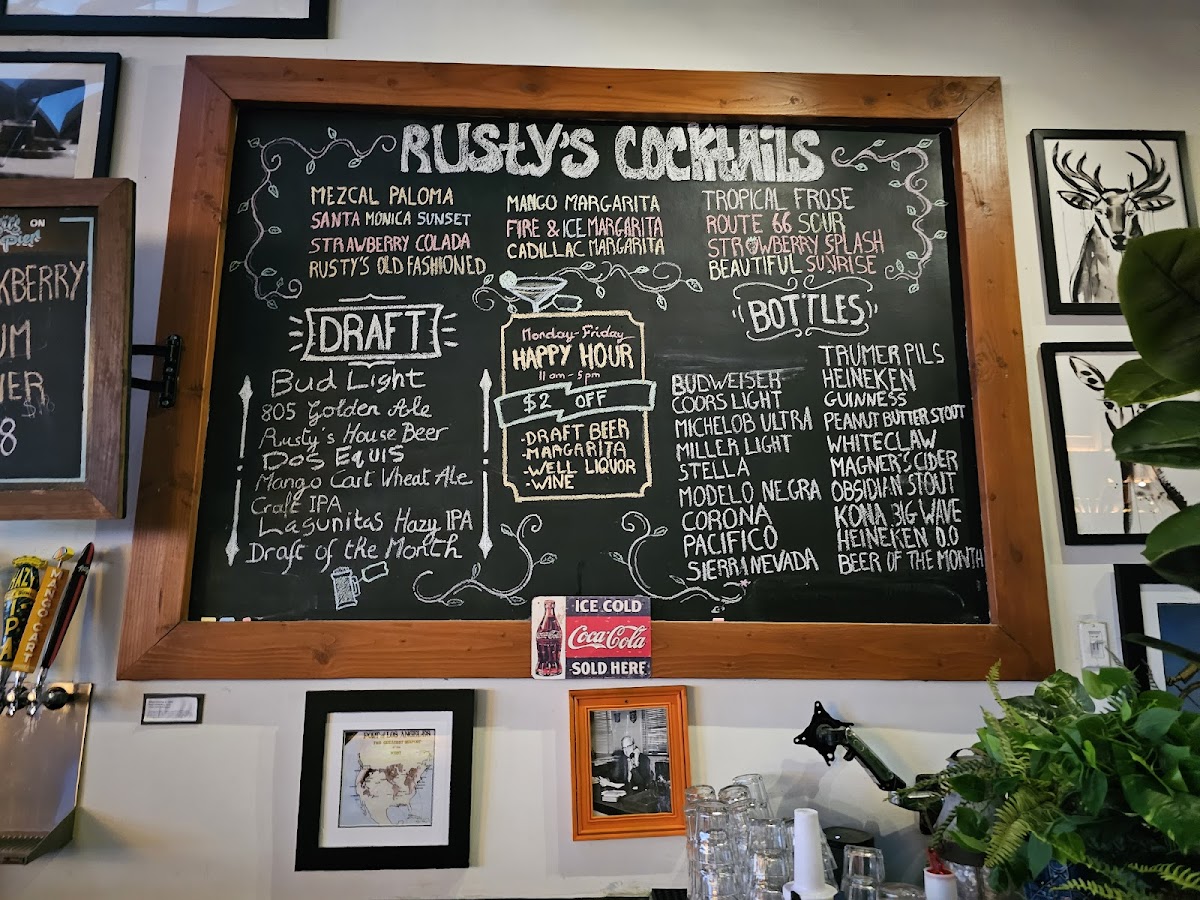 RUSTY'S COCKTAILS
MEZCAL PALOMA
SANTA MONICA SUNSET
STRAWBERRY COLADA
RUSTY'S OLD FASHIONED
MANGO MARGARITA
FIRE & ICE MARGARITA
CADILLAC MARGARITA
TROPICAL FROSE
ROUTE 66 SOUR
STRAWBERRY SPLASH
BEAUTIFUL SUNRISE
DRAFT
Bud Light
805 Golden Ale
Rusty's House Beer
Dos Equis
Mango Cart Wheat Ale
Craft IPA
Lagunitas Hazy IPA
Draft of the Month
Monday-Friday
HAPPY HOUR
11 am - 5 pm
$2 OFF
-DRAFT BEER
-MARGARITA
-WELL LIQUOR
-WINE
BOTTLES
BUDWEISER
COORS LIGHT
MICHELOB ULTRA
MILLER LIGHT
STELLA
MODELO NEGRA
CORONA
PACIFICO
SIERRA NEVADA
TRUMER PILS
HEINEKEN
GUINNESS
PEANUT BUTTER STOUT
WHITECLAW
MAGNER'S CIDER
OBSIDIAN STOUT
KONA BIG WAVE
HEINEKEN 0.0
BEER OF THE MONTH
ICE COLD
Coca-Cola
SOLD HERE
ON
Pier!
MANGO CART
PORT OF LOS ANGELES